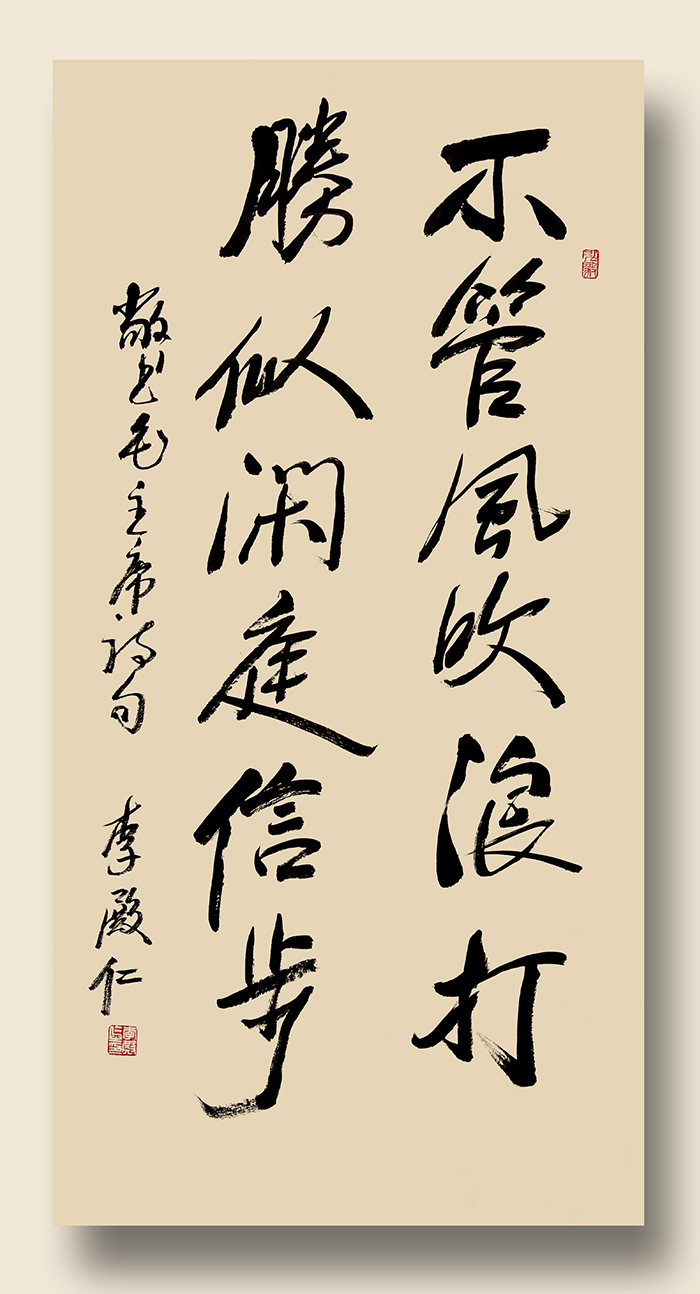 不管風吹浪打
勝似闲庭信步
敬书毛主席诗句 李殿仁